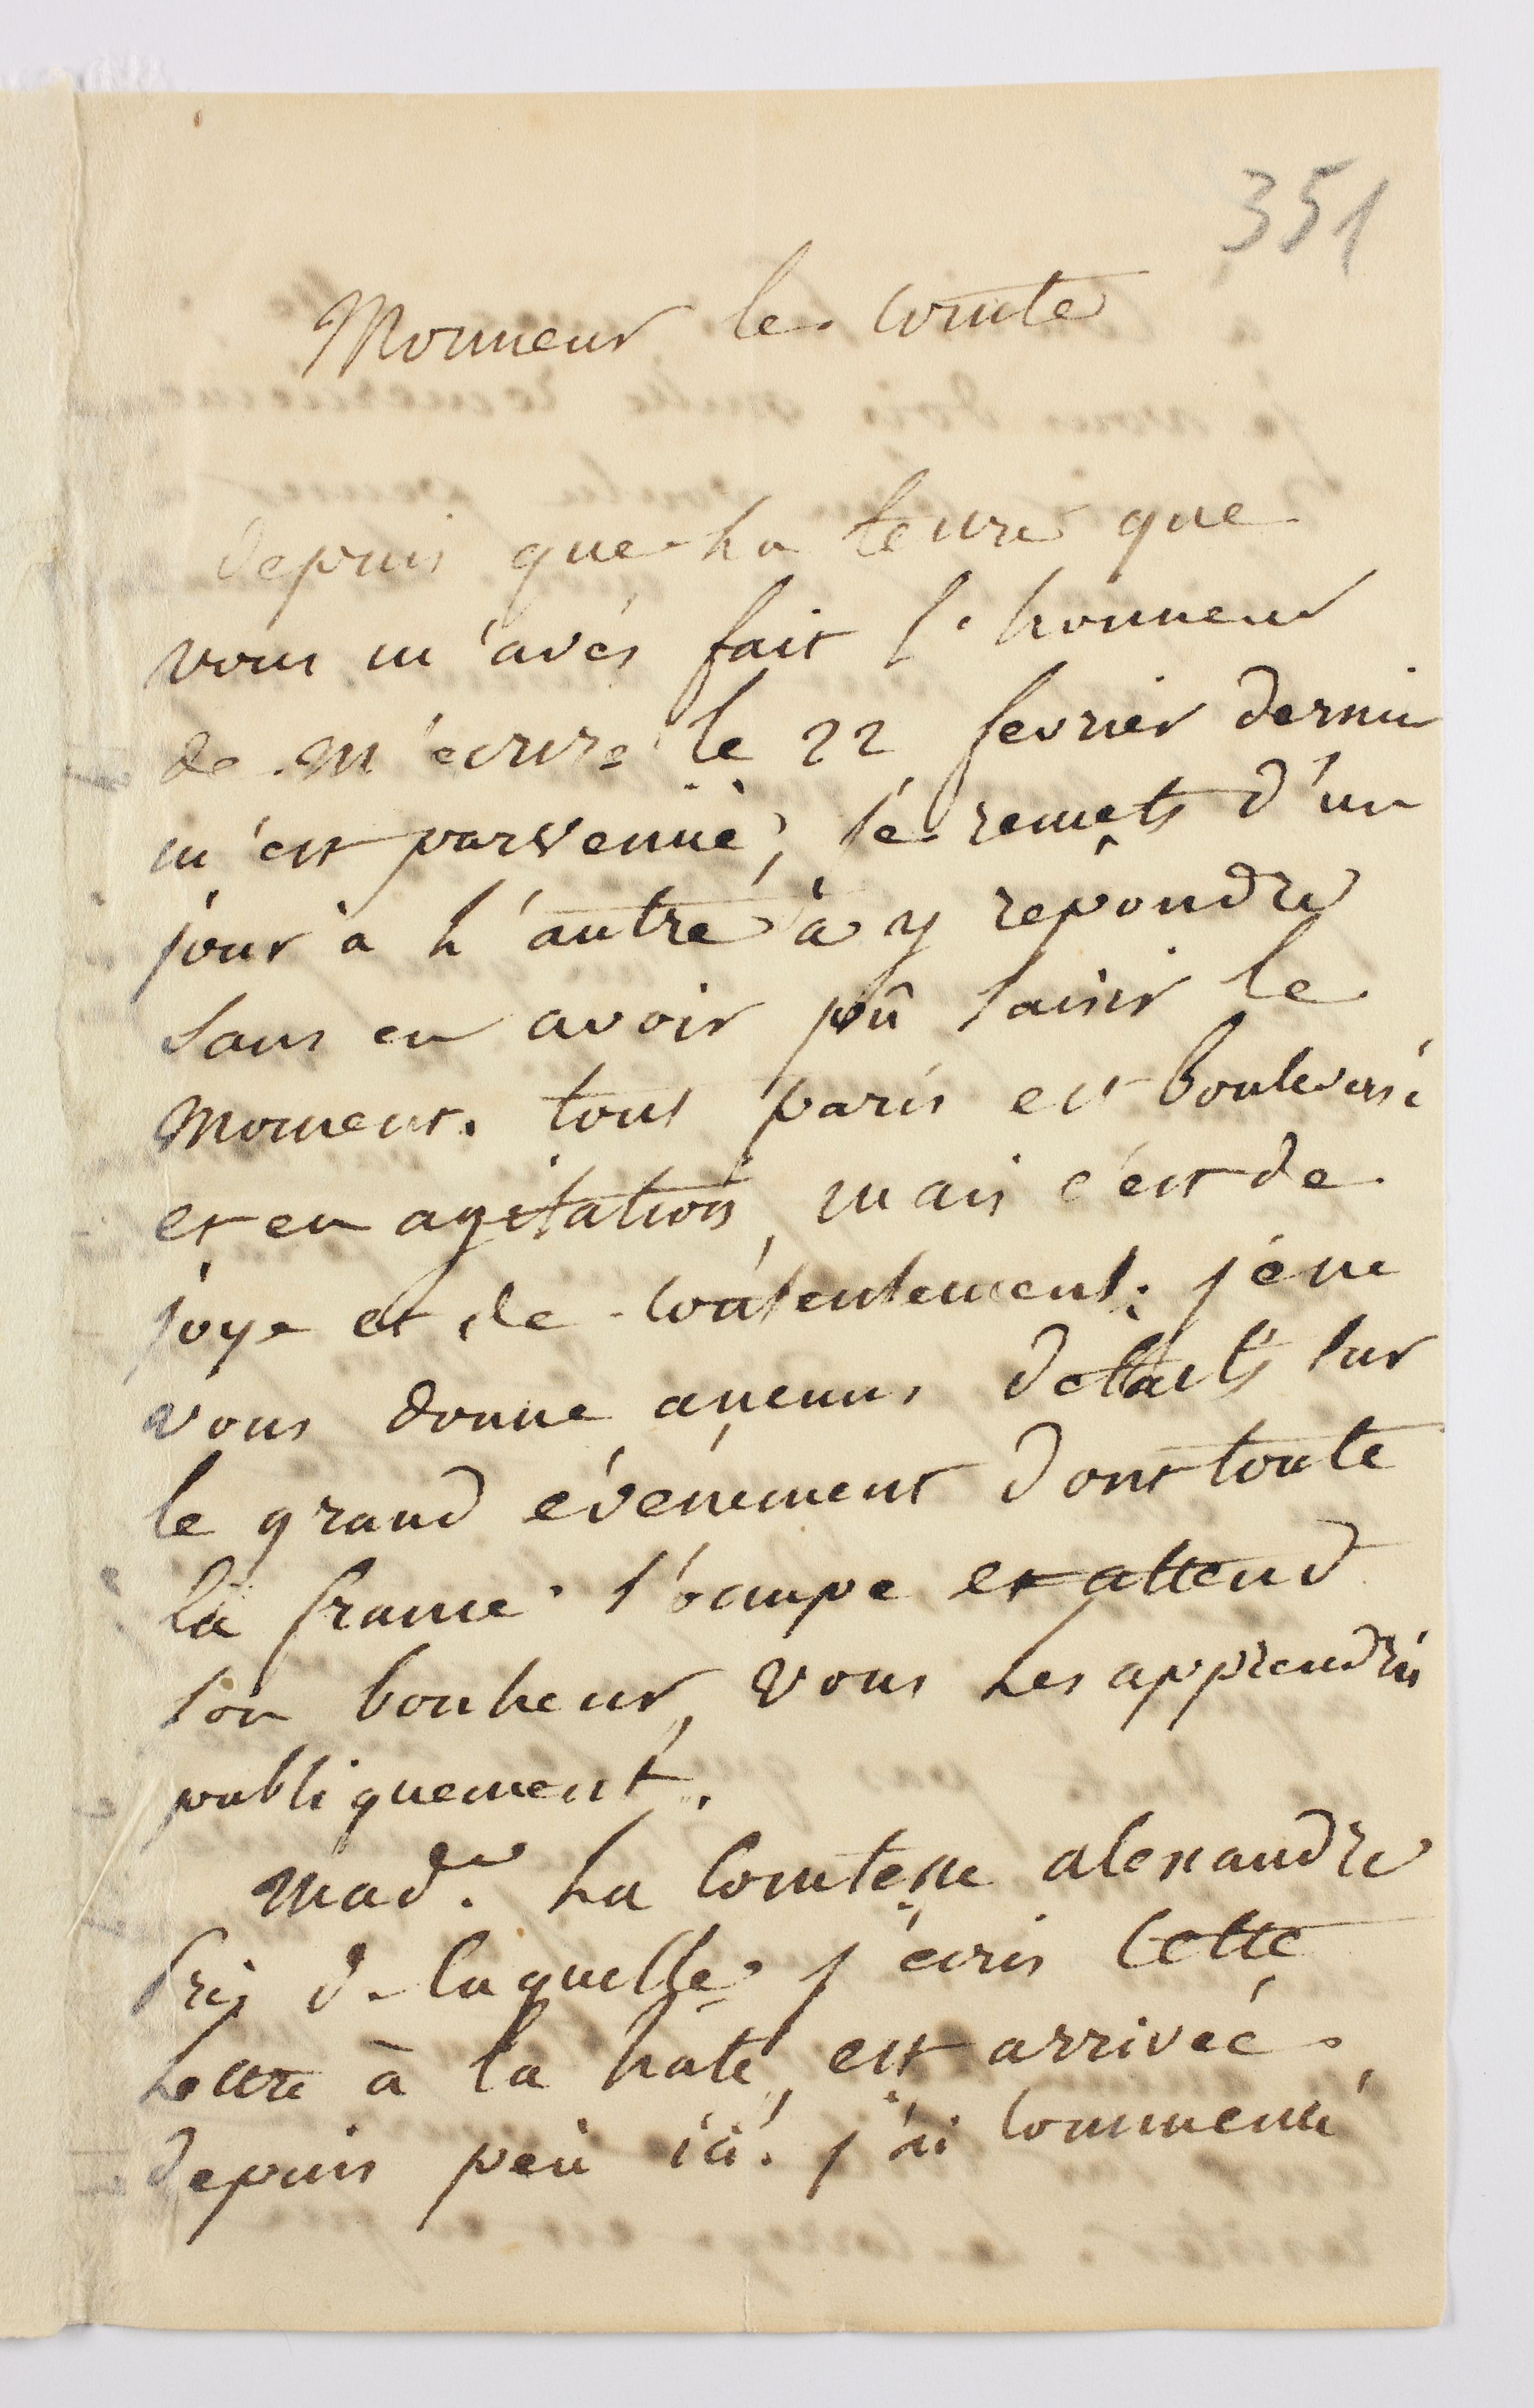 351
Monsieur le Comte
depuis que la lettre que
vous m'avés fait l'honneur
de m'ecrire le 22 fevrier dernier
m'est parvenuë, je remets d'un
jour à l'autre à y repondre
sans en avoir pû saisir le
moment. tout paris est boulversé
et en agitation, mais c'est de
joye et de contentement; je ne
vous donne aucuns details sur
le grand évenement dont toute
la france s'occupe et attend
son bonheur, vous les apprendrés
publiquement.
Made. La Comtesse alexandre
près de laquelle j'ecris cette
Lettre à la hate, est arrivée
depuis peu ici. j'ai commencé